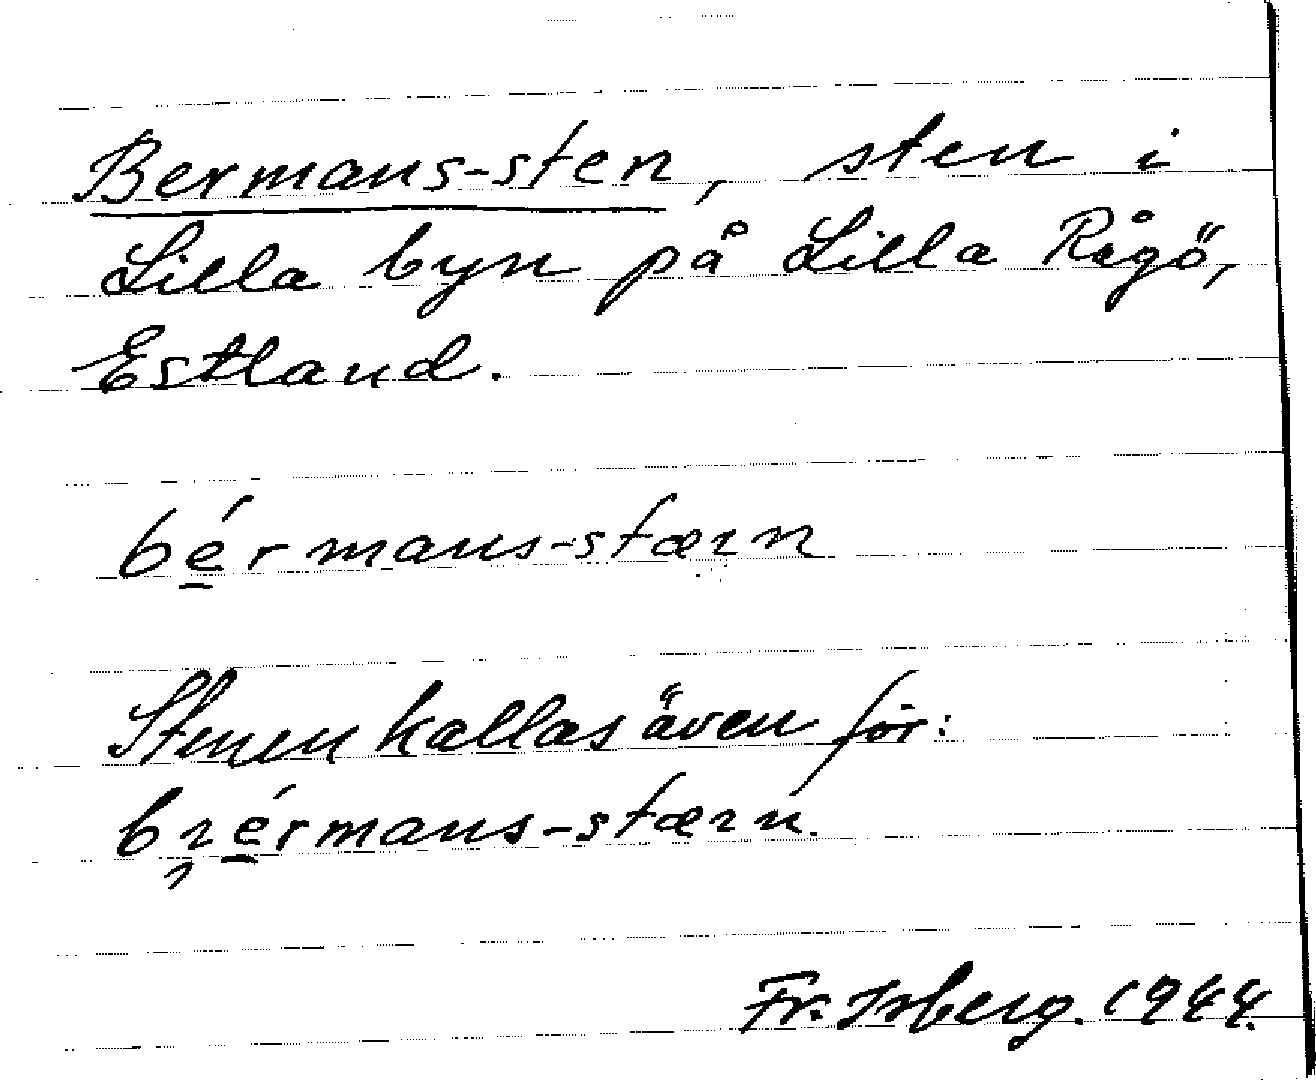 Bermans-sten, sten i
Lilla byn på Lilla Rågö,
Estland.
bé̱rmans-stæın
Stenen kallas även för:
bıé̱rmans-stæın.
Fr. Isberg. 1944.